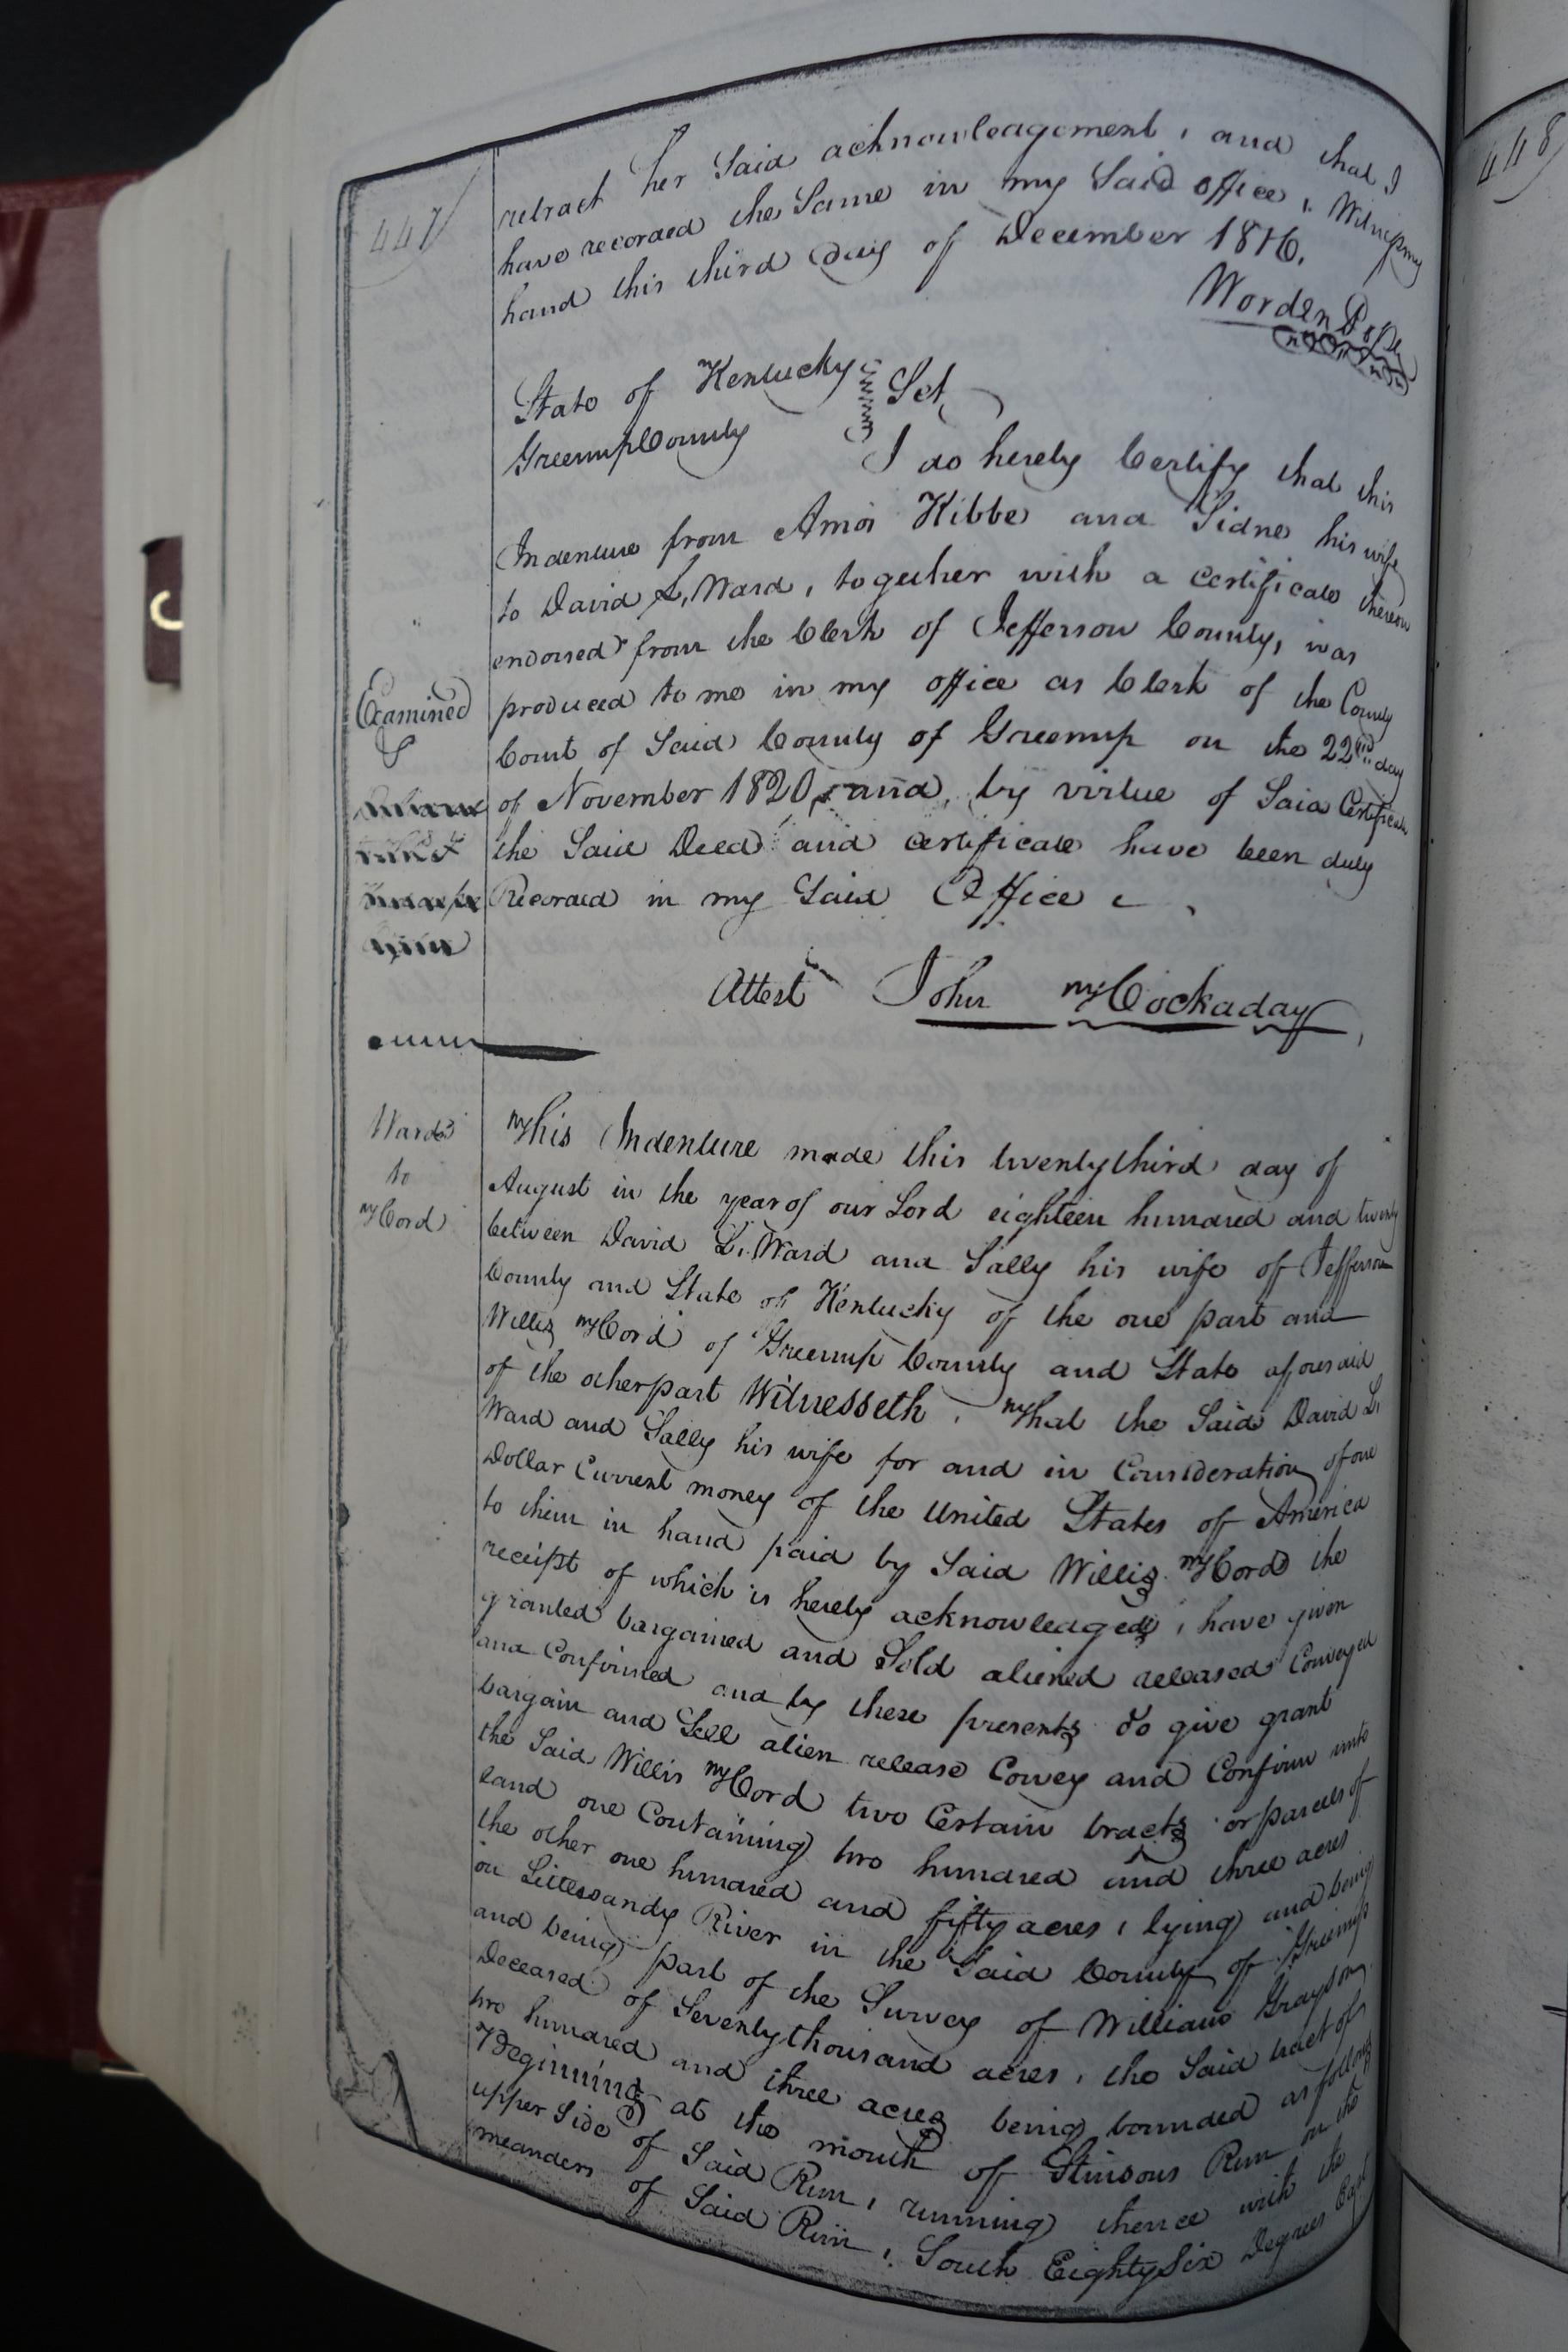 447
retract her Said acknowledgement, and that I
have recorded the Same in my Said office, Witness my
hand this third day of December 1816.
Worden Pope
State of Kentucky
Greenup County
Sct,
I do hereby Certify that this
Indenture from Amos Kibbe and Sidne his wife
to David L, Ward, together with a certificate thereon
endorsed from the Clerk of Jefferson County, was
produced to me in my office as Clerk of the County
Court of Said County of Greenup on the 22nd day
of November 1820, and, by virtue of Said Certificate
the Said Deed and certificate have been duly
Recorded in my Said Office
Examined
Attest John McCockaday
Ward
to
McCord
This Indenture made this twentythird day of
August in the year of our Lord eighteen hundred and twenty
between David L. Ward and Sally his wife of Jefferson
County and State of Kentucky of the one part and
Willis McCord of Greenup County and State aforesaid
of the other part Witnesseth, That the Said David L.
Ward and Sally his wife for and in Consideration of one
Dollar Current money of the United States of America
to them in hand paid by Said Willis McCord the
receipt of which is hereby acknowledged, have given
granted bargained and Sold aliened released Conveyed
and Confirmed and by these presents do give grant
bargain and Sell alien release Convey and Confirm unto
the Said Willis McCord two Certain tracts or parcels of
land one Containing two hundred and three acres
the other one hundred and fifty acres, lying and being
on Littlesandy River in the Said County of Greenup
and being part of the Survey of William Grayson
Deceased of Seventythousand acres, the Said tract of
two hundred and three acres being bounded as follows
Beginning at the mouth of Stinsons Run on the
upper Side of Said Run, running thence with the
meanders of Said Run, South EightySix Degrees East
448